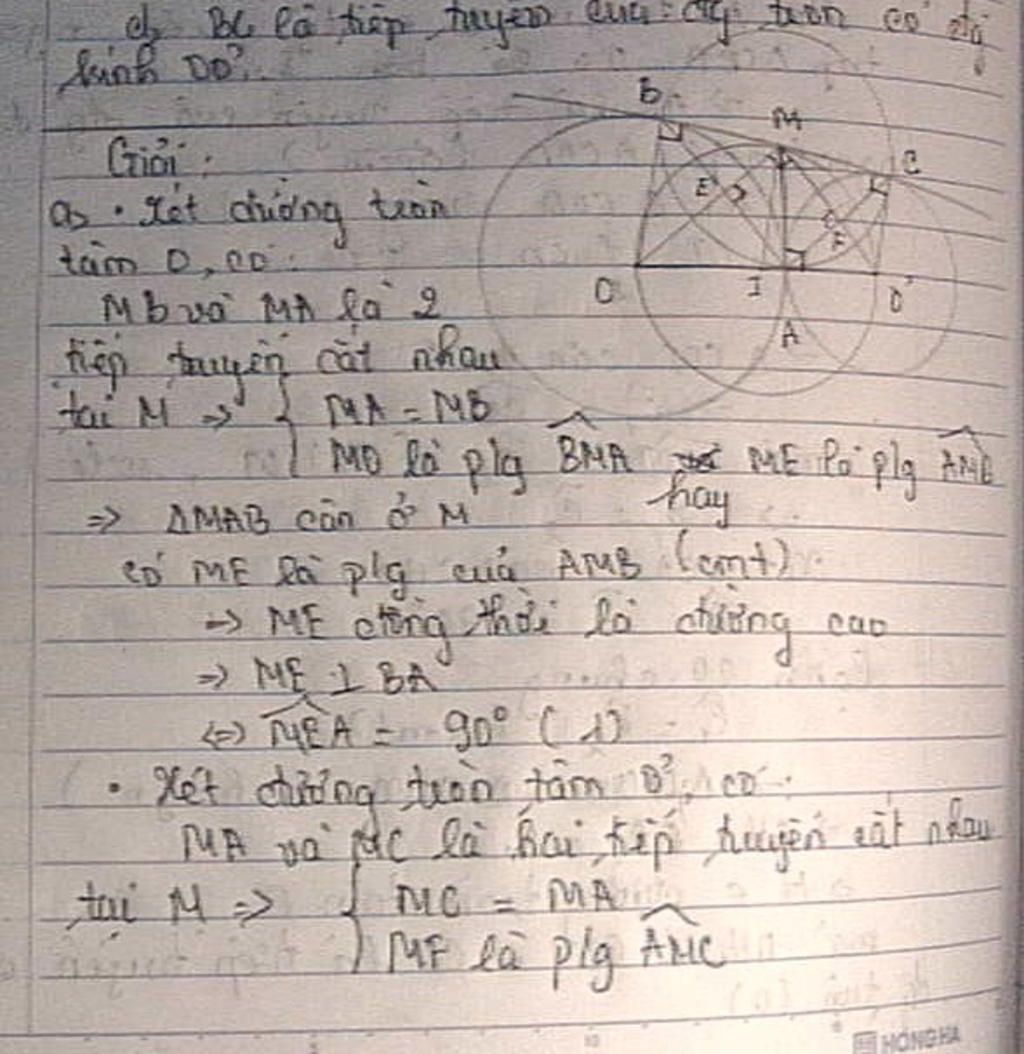 d, BC là tiếp tuyến của đg tròn có đg
kính OO'.
Giải:
B
M
C
E
F
O
I
O'
A
a, • Xét đường tròn
tâm O, có:
MB và MA là 2
tiếp tuyến cắt nhau
tại M => { MA = MB
MO là p/g BMA hay ME là p/g AMB
=> ΔMAB cân ở M
có ME là p/g của AMB (cmt)
=> ME đồng thời là đường cao
=> ME ⊥ BA
<=> MEA = 90° (1)
• Xét đường tròn tâm O', có:
MA và MC là hai tiếp tuyến cắt nhau
tại M => { MC = MA
MF là p/g AMC
HONG HA